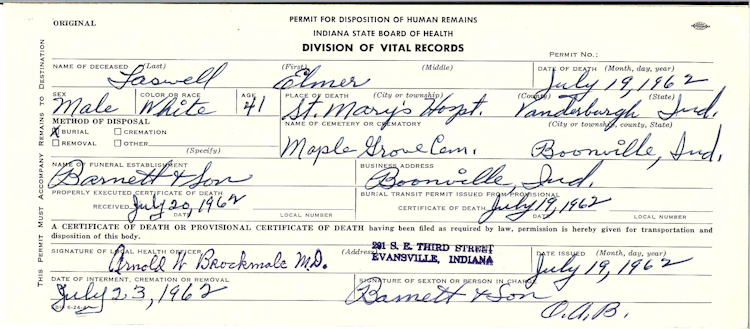 ORIGINAL
PERMIT FOR DISPOSITION OF HUMAN REMAINS
INDIANA STATE BOARD OF HEALTH
DIVISION OF VITAL RECORDS
PERMIT NO.:
THIS PERMIT MUST ACCOMPANY REMAINS TO DESTINATION
NAME OF DECEASED (Last) (First) (Middle) DATE OF DEATH (Month, day, year)
Taswell Elmer July 19, 1962
SEX COLOR OR RACE AGE PLACE OF DEATH (City or township) (County) (State)
Male White 41 St. Mary's Hospt. Vanderburgh Ind.
METHOD OF DISPOSAL NAME OF CEMETERY OR CREMATORY (City or township, county, State)
X BURIAL CREMATION
REMOVAL OTHER
(Specify)
Maple Grove Cem. Boonville, Ind.
NAME OF FUNERAL ESTABLISHMENT BUSINESS ADDRESS
Barnett & Son Boonville, Ind.
PROPERLY EXECUTED CERTIFICATE OF DEATH BURIAL TRANSIT PERMIT ISSUED FROM PROVISIONAL
RECEIVED July 20, 1962 CERTIFICATE OF DEATH July 19, 1962
DATE LOCAL NUMBER DATE LOCAL NUMBER
A CERTIFICATE OF DEATH OR PROVISIONAL CERTIFICATE OF DEATH having been filed as required by law, permission is hereby given for transportation and
disposition of this body.
SIGNATURE OF LOCAL HEALTH OFFICER (Address) DATE ISSUED (Month, day, year)
Arnold W Brockmole M.D. 291 S. E. THIRD STREET July 19, 1962
EVANSVILLE, INDIANA
DATE OF INTERMENT, CREMATION OR REMOVAL SIGNATURE OF SEXTON OR PERSON IN CHARGE
July 23, 1962 Barnett & Son
O.A.B.